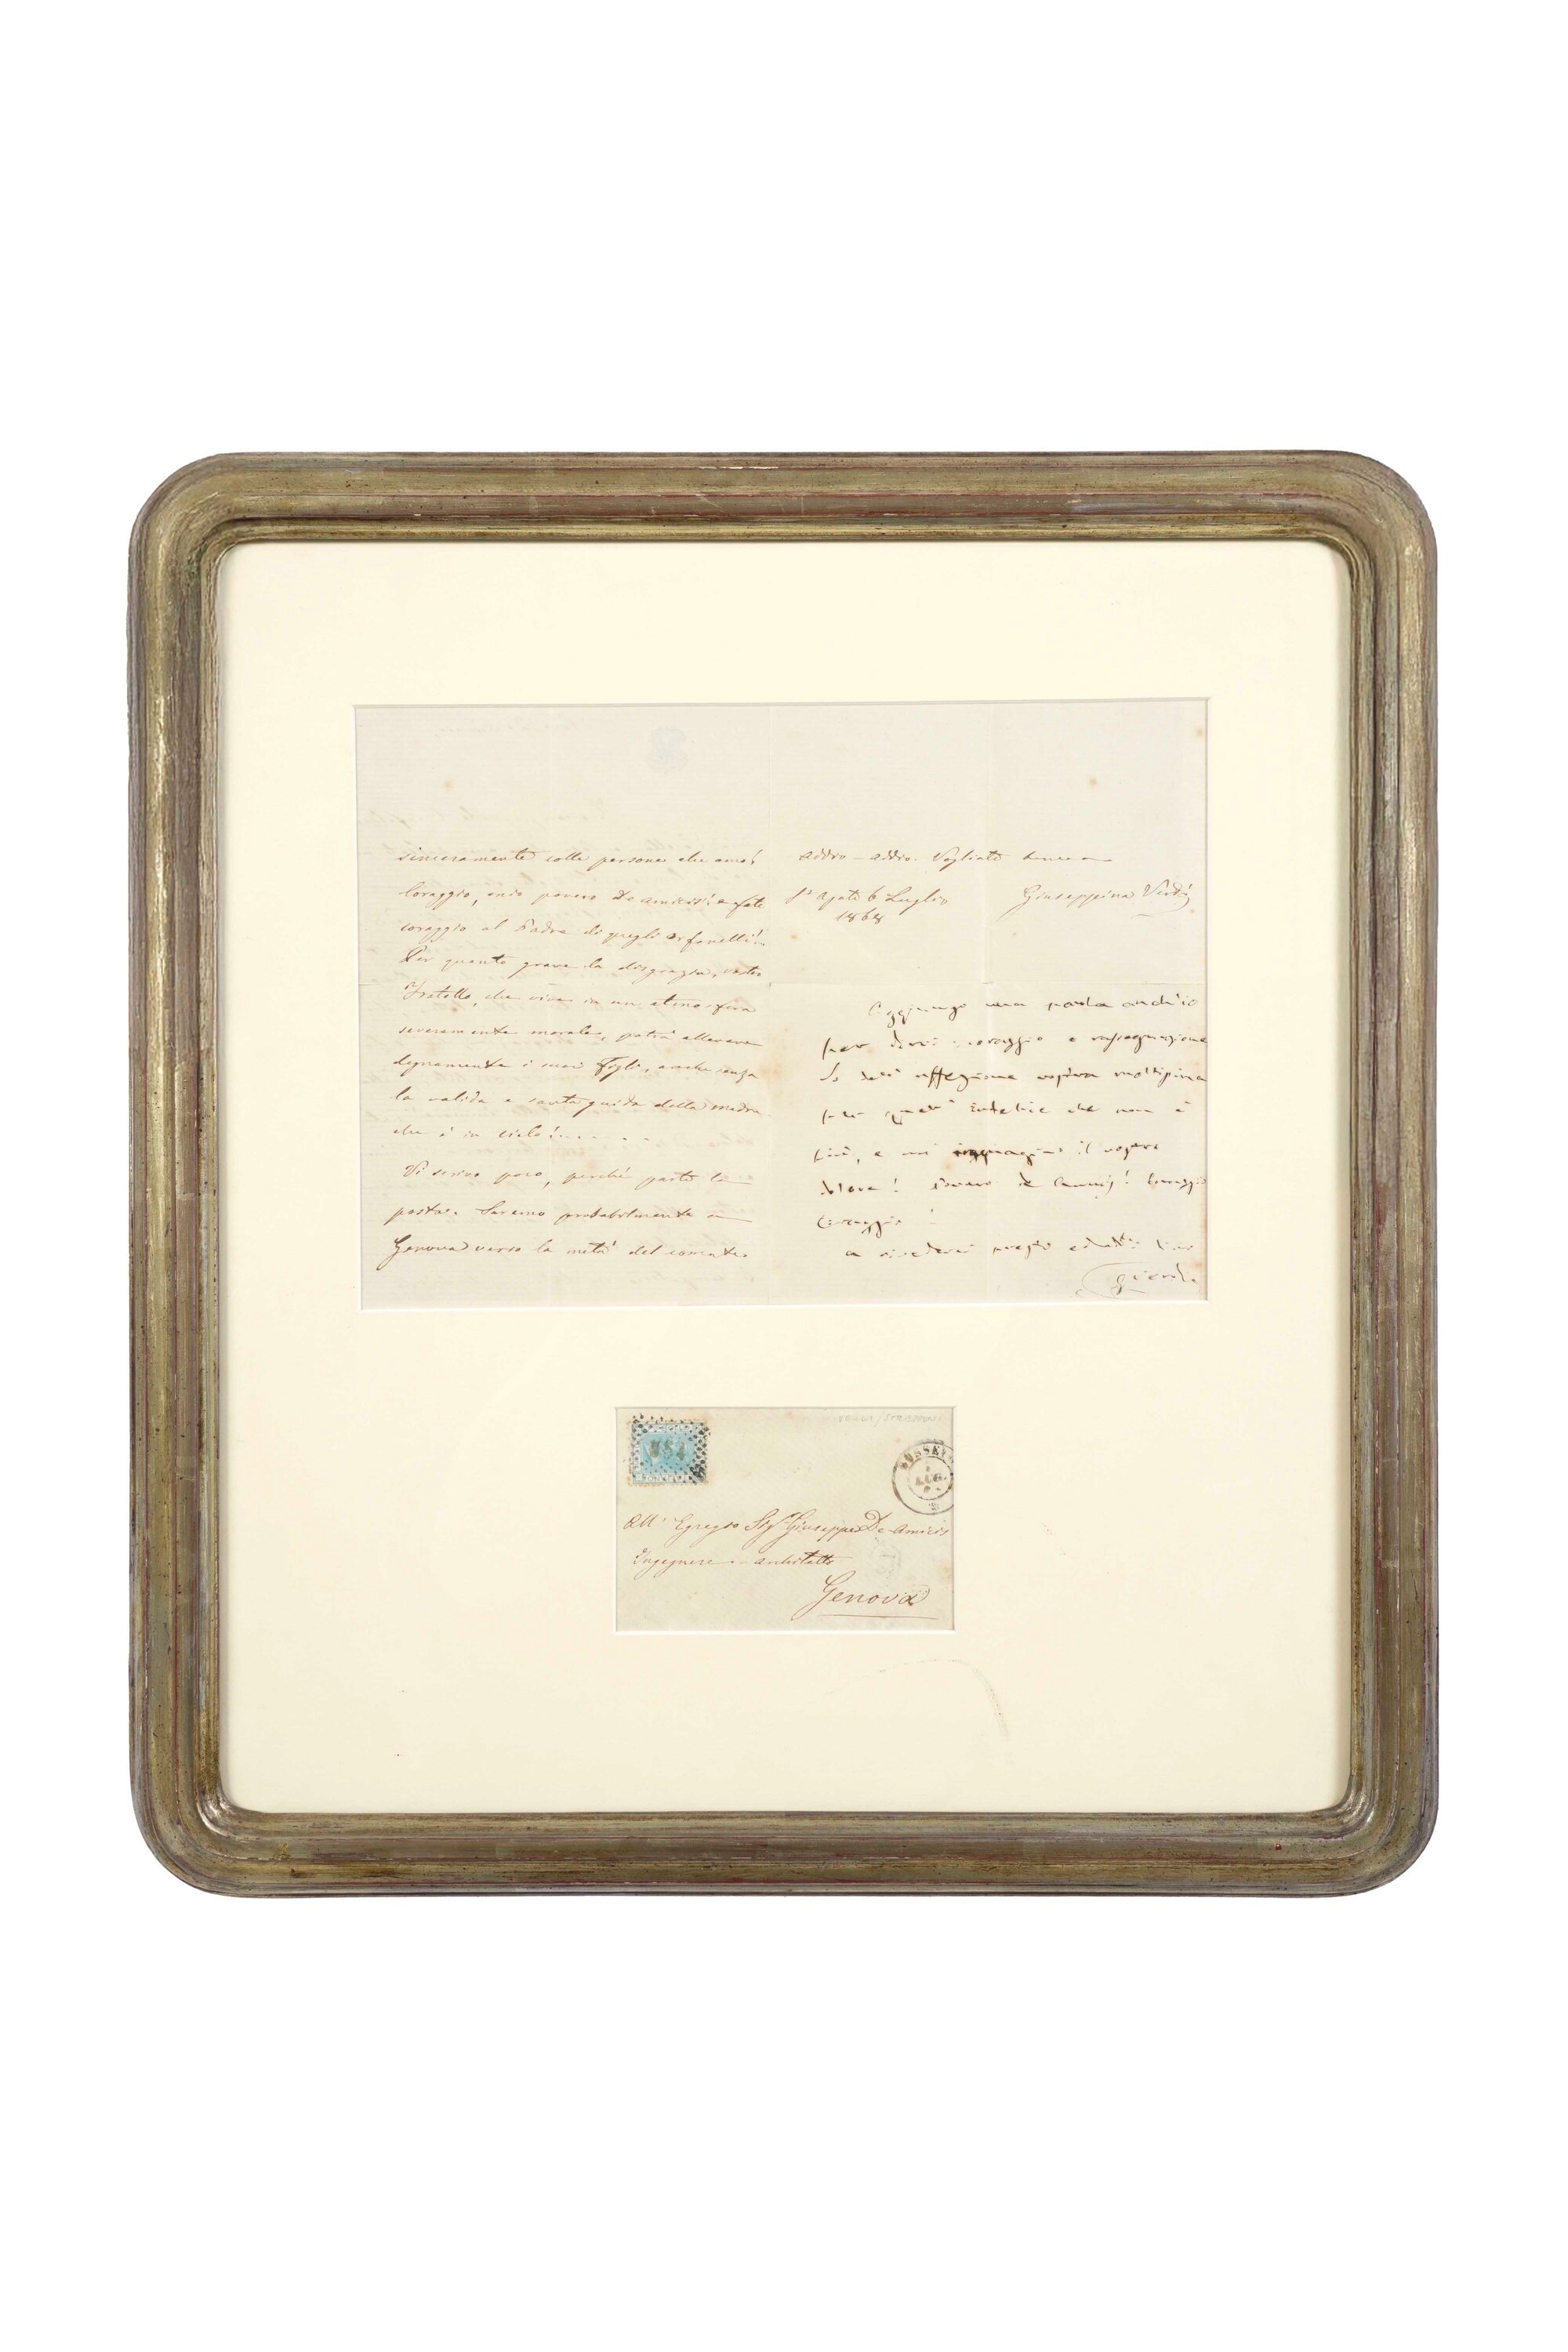 sinceramente colle persone che amo!
Coraggio, mio povero De Amicis! e fate
coraggio al Padre di quegli orfanelli!
Per quanto grave la disgrazia, vostro
fratello, che vive in un atmosfera
severamente morale, potrà allevare
degnamente i suoi figli, anche senza
la valida e santa guida della madre
che è in cielo! . . . . .
Vi scrivo poco, perchè parte la
posta. Saremo probabilmente a
Genova verso la metà del corrente
Addio – addio. Vogliate bene a
St Agata 6 Luglio
1868
Giuseppina Verdi
Aggiungo una parola anch'io
per dirvi coraggio e rassegnazione
So dell' affezione vostra moltissima
per quell' infelice che non è
più, e mi immagino il vostro
dolore! Povero De Amicis! Coraggio
Coraggio!
a rivederci presto
G Verdi
BUSSETO
AUG.
All' Egregio Sigr Giuseppe De-Amicis
Ingegnere – Architetto
Genova